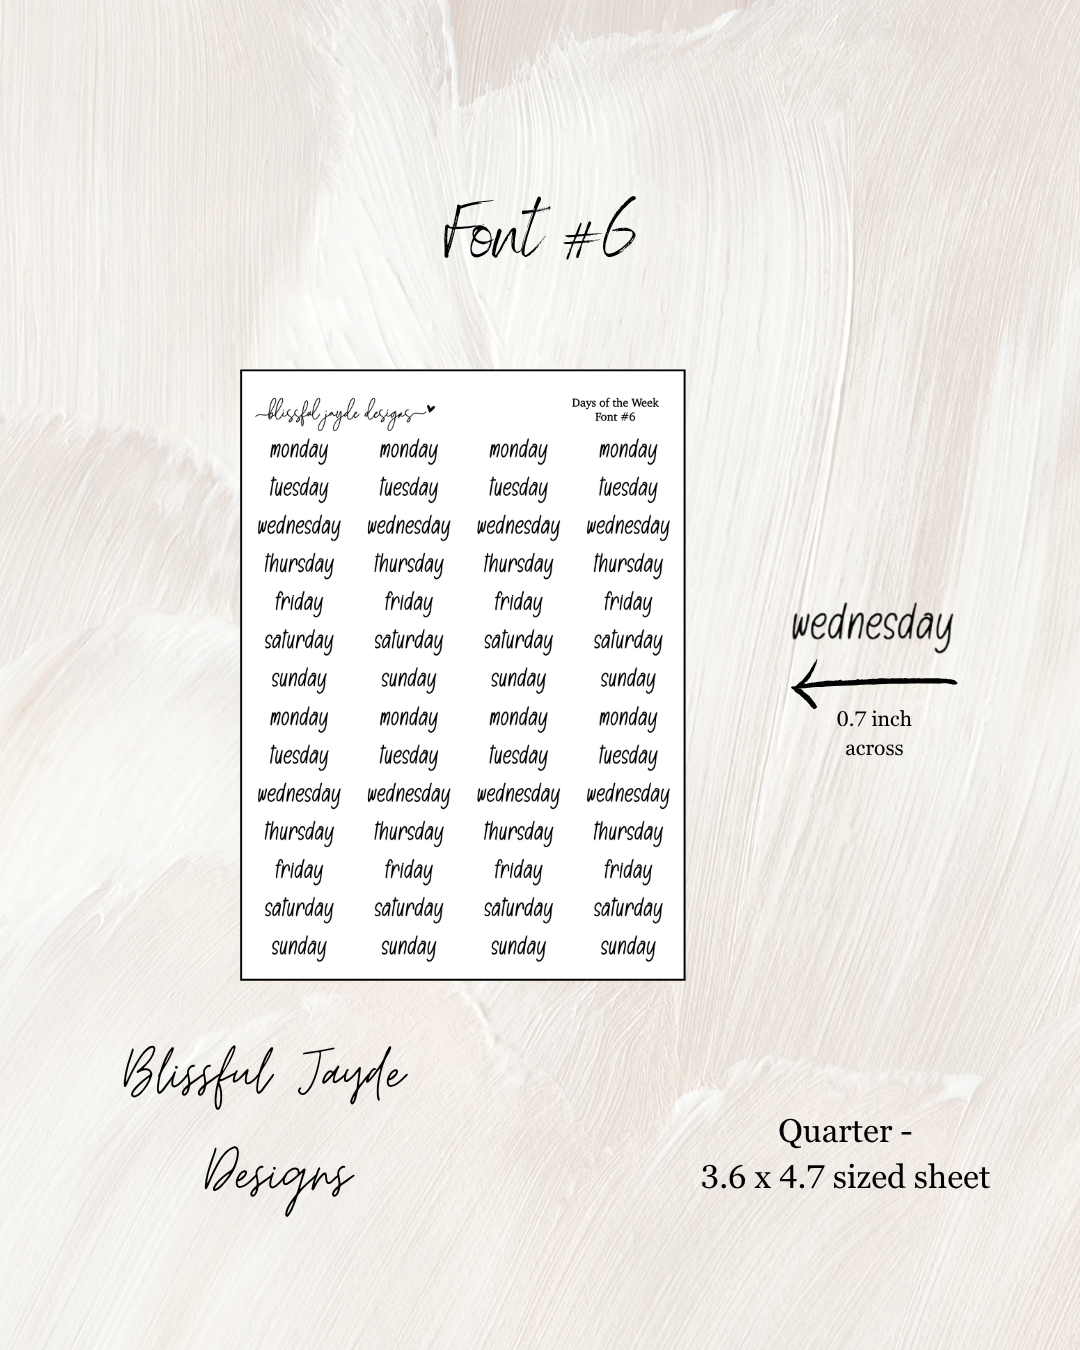 Font #6
blissful jayde designs
Days of the Week
Font #6
monday monday monday monday
tuesday tuesday tuesday tuesday
wednesday wednesday wednesday wednesday
thursday thursday thursday thursday
friday friday friday friday
saturday saturday saturday saturday
sunday sunday sunday sunday
monday monday monday monday
tuesday tuesday tuesday tuesday
wednesday wednesday wednesday wednesday
thursday thursday thursday thursday
friday friday friday friday
saturday saturday saturday saturday
sunday sunday sunday sunday
wednesday
0.7 inch
across
Blissful Jayde
Designs
Quarter -
3.6 x 4.7 sized sheet